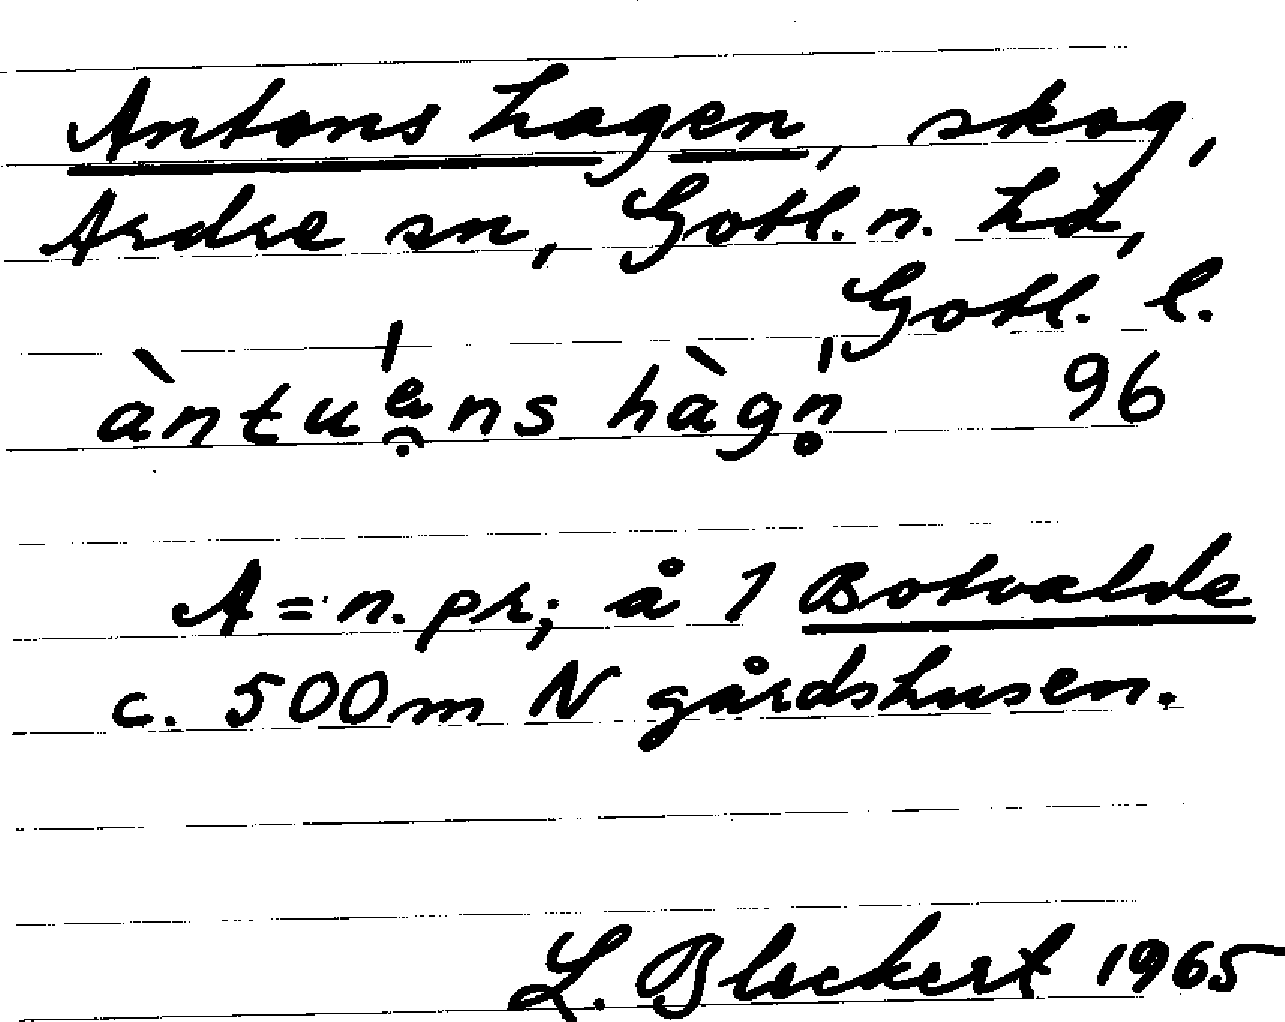 Antons hagen, skog,
Ardre sn, Gotl. n. hd,
Gotl. l.
àntu'e̯ns hàg'n̥ 96
A = n. pr; å 1 Botvalde
c. 500m N gårdshusen.
L. Bleckert 1965